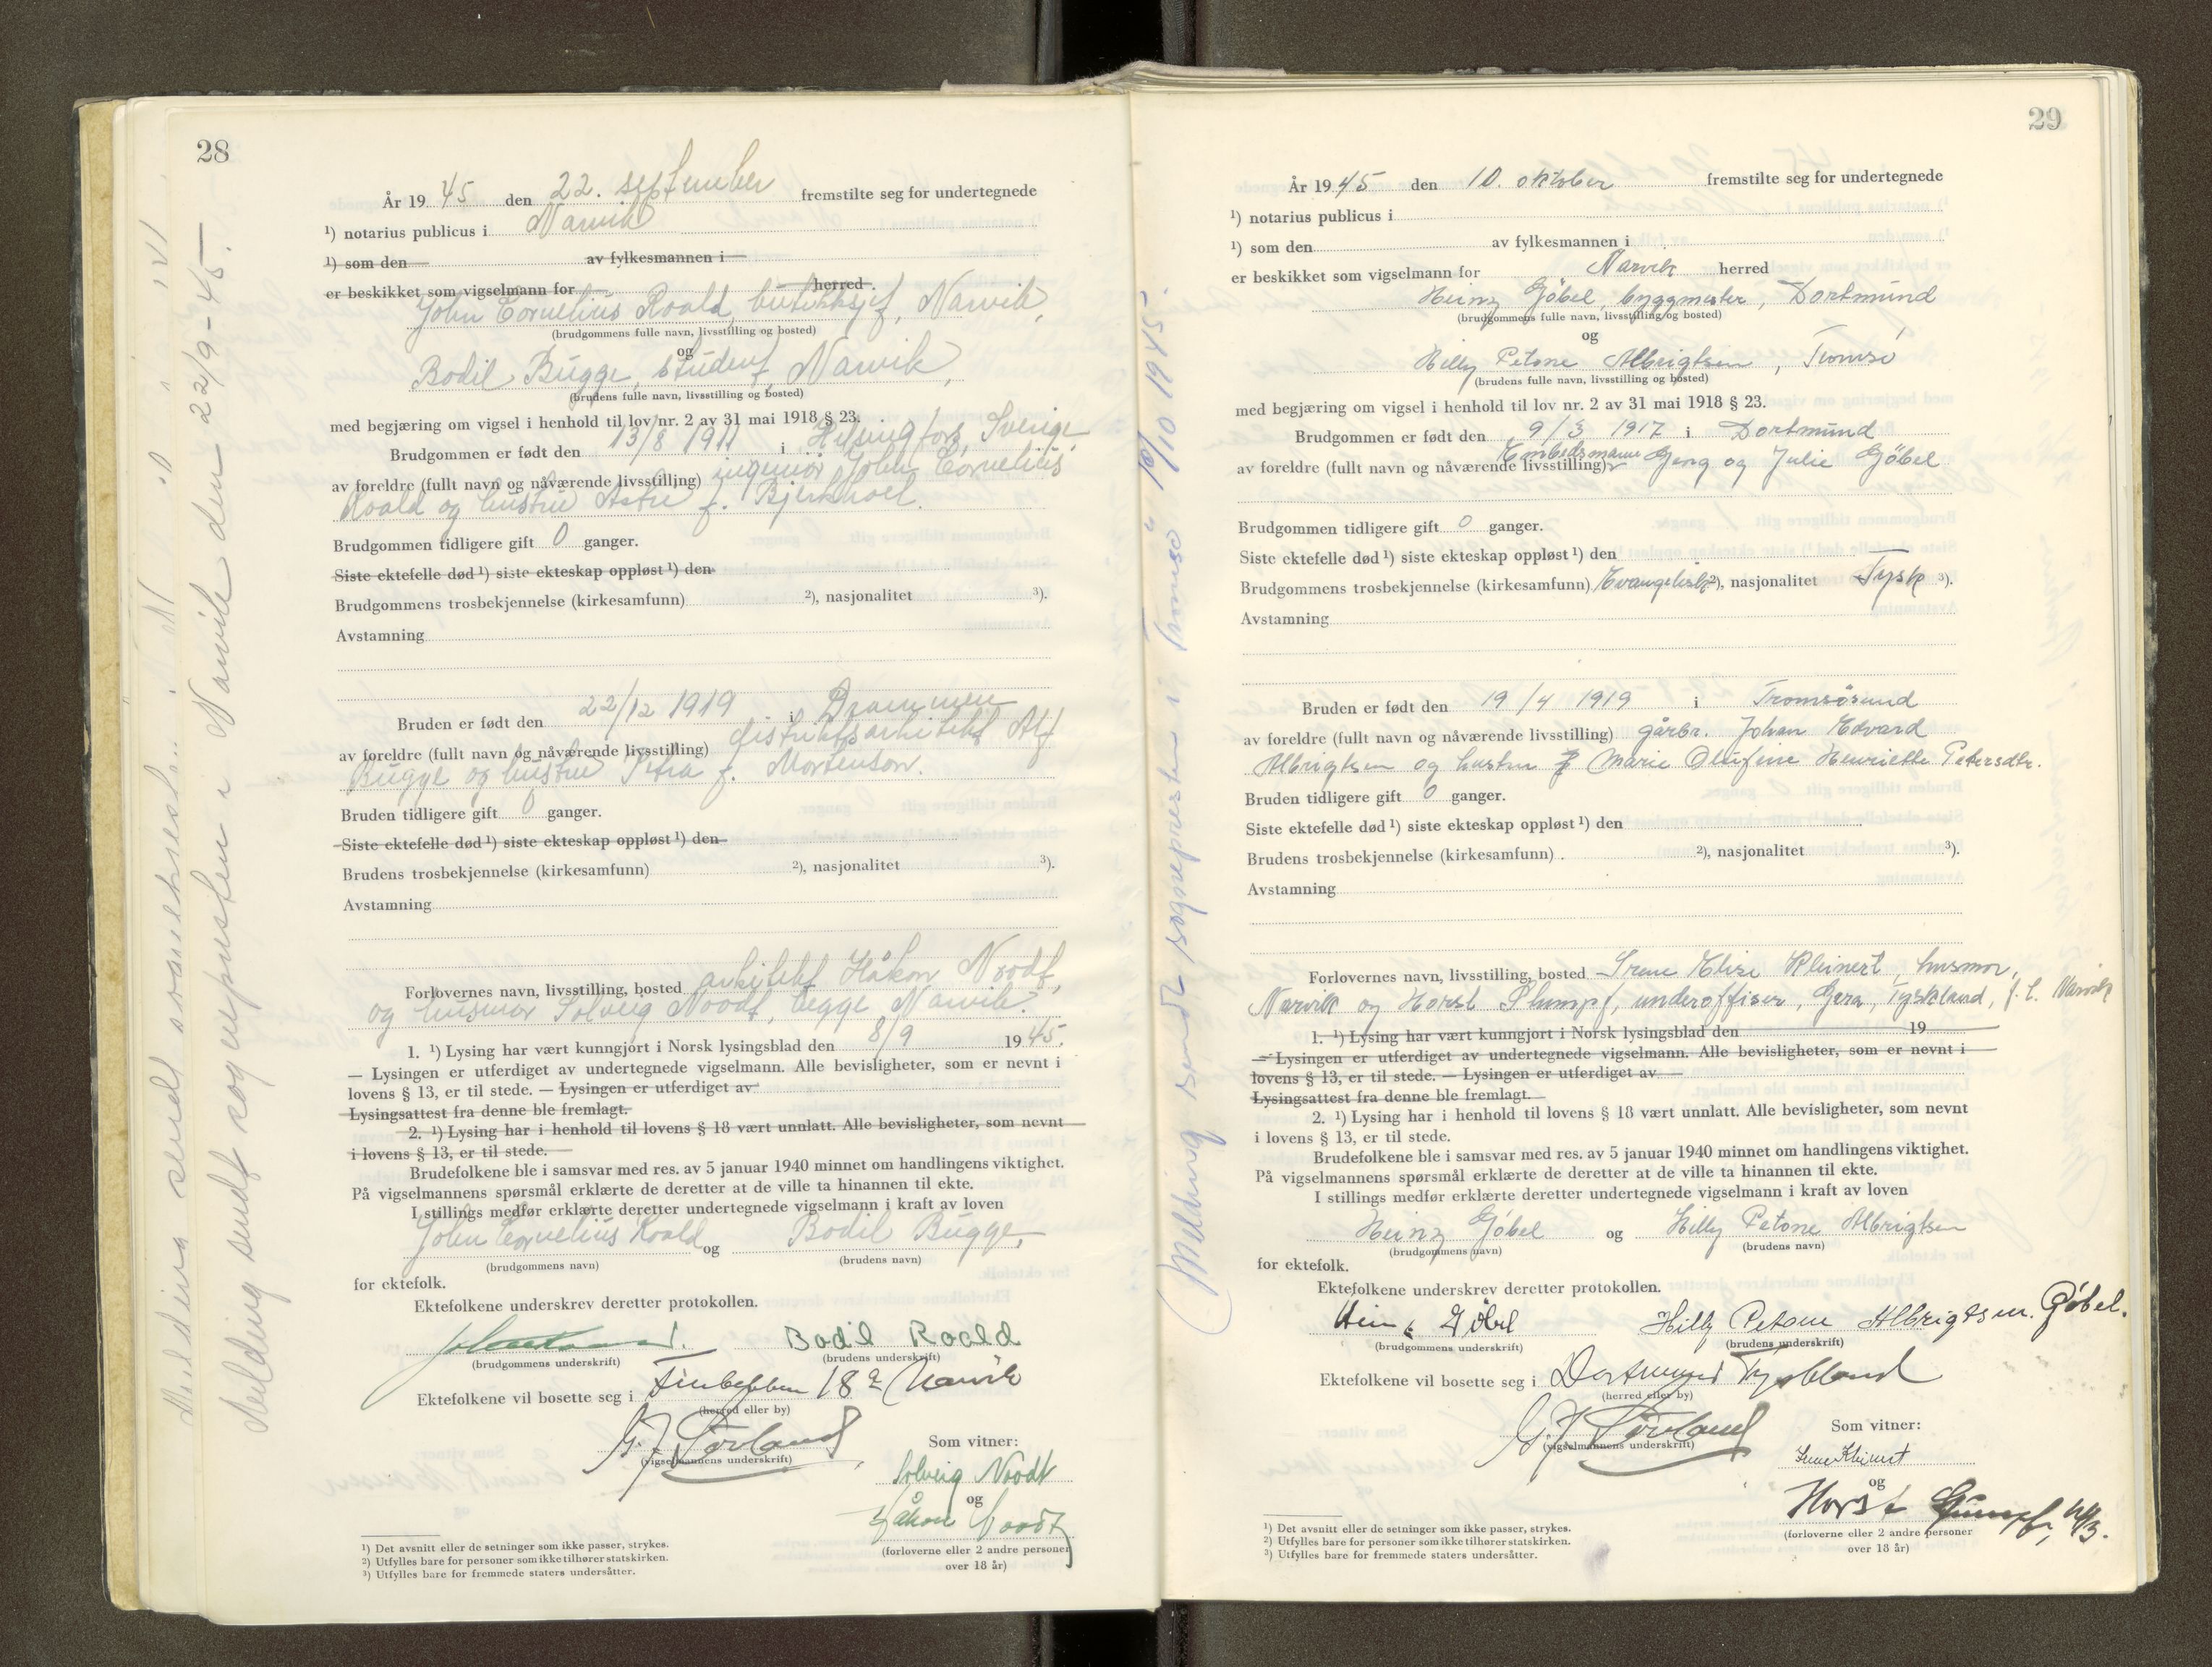 28
År 19 45 den 22. september fremstilte seg for undertegnede
¹) notarius publicus i Narvik
¹) som den av fylkesmannen i
er beskikket som vigselmann for herred.
John Cornelius Roald, butikksjef, Narvik,
(brudgommens fulle navn, livsstilling og bosted)
og
Bodil Bugge, student, Narvik,
(brudens fulle navn, livsstilling og bosted)
med begjæring om vigsel i henhold til lov nr. 2 av 31 mai 1918 § 23.
Brudgommen er født den 13/8 1911 i Helsingfors, Sverige,
av foreldre (fullt navn og nåværende livsstilling) ingeniør John Cornelius
Roald og hustru Astri f.
Brudgommen tidligere gift 0 ganger.
Siste ektefelle død ¹) siste ekteskap oppløst ¹) den
Brudgommens trosbekjennelse (kirkesamfunn) ²), nasjonalitet ³).
Avstamning
Bruden er født den 22/12 1919 i Drammen
av foreldre (fullt navn og nåværende livsstilling) distriktsarkitekt Alf
Bugge og hustru Petra f. Mortenson.
Bruden tidligere gift 0 ganger.
Siste ektefelle død ¹) siste ekteskap oppløst ¹) den
Brudens trosbekjennelse (kirkesamfunn) ²), nasjonalitet ³).
Avstamning
Forlovernes navn, livsstilling, bosted arkitekt Håkon Noodt,
og husmor Solveig Noodt, begge Narvik.
1. ¹) Lysing har vært kunngjort i Norsk lysingsblad den 8/9 19 45.
— Lysingen er utferdiget av undertegnede vigselmann. Alle bevisligheter, som er nevnt i
lovens § 13, er til stede. — Lysingen er utferdiget av
Lysingsattest fra denne ble fremlagt.
2. ¹) Lysing har i henhold til lovens § 18 vært unnlatt. Alle bevisligheter, som nevnt
i lovens § 13, er til stede.
Brudefolkene ble i samsvar med res. av 5 januar 1940 minnet om handlingens viktighet.
På vigselmannens spørsmål erklærte de deretter at de ville ta hinannen til ekte.
I stillings medfør erklærte deretter undertegnede vigselmann i kraft av loven
John Cornelius Roald og Bodil Bugge,
(brudgommens navn) (brudens navn)
for ektefolk.
Ektefolkene underskrev deretter protokollen.
Bodil Roald
(brudgommens underskrift) (brudens underskrift)
Ektefolkene vil bosette seg i 18 Narvik
(herred eller by)
(vigselmannens underskrift)
Som vitner:
Solveig Noodt
og
Håkon Noodt
(forloverne eller 2 andre personer
over 18 år)
¹) Det avsnitt eller de setninger som ikke passer, strykes.
²) Utfylles bare for personer som ikke tilhører statskirken.
³) Utfylles bare for fremmede staters undersåtter.
Melding sendt
Melding sendt sognepresten i Narvik den 22/9-45.
29
År 19 45 den 10. oktober fremstilte seg for undertegnede
¹) notarius publicus i
¹) som den av fylkesmannen i
er beskikket som vigselmann for Narvik herred
Heinz Göbel, byggmester, Dortmund
(brudgommens fulle navn, livsstilling og bosted)
og
Hilly Petone Albrigtsen, Tromsö
(brudens fulle navn, livsstilling og bosted)
med begjæring om vigsel i henhold til lov nr. 2 av 31 mai 1918 § 23.
Brudgommen er født den 9/3 1917 i Dortmund
av foreldre (fullt navn og nåværende livsstilling) Embedsmann Georg og Julie Göbel
Brudgommen tidligere gift 0 ganger.
Siste ektefelle død ¹) siste ekteskap oppløst ¹) den
Brudgommens trosbekjennelse (kirkesamfunn) Evangelisk ²), nasjonalitet Tysk ³).
Avstamning
Bruden er født den 19/4 1919 i Tromsösund
av foreldre (fullt navn og nåværende livsstilling) gårbr. Johan Edvard
Albrigtsen og hustru Marie Olufine Henriette Petersdtr.
Bruden tidligere gift 0 ganger.
Siste ektefelle død ¹) siste ekteskap oppløst ¹) den
Brudens trosbekjennelse (kirkesamfunn) ²), nasjonalitet ³).
Avstamning
Forlovernes navn, livsstilling, bosted Irene Elise Kleinert, husmor,
Narvik og Horst Plumpf, underoffiser, Gera, Tyskland, f. t. Narvik
1. ¹) Lysing har vært kunngjort i Norsk lysingsblad den 19
— Lysingen er utferdiget av undertegnede vigselmann. Alle bevisligheter, som er nevnt i
lovens § 13, er til stede. — Lysingen er utferdiget av
Lysingsattest fra denne ble fremlagt.
2. ¹) Lysing har i henhold til lovens § 18 vært unnlatt. Alle bevisligheter, som nevnt
i lovens § 13, er til stede.
Brudefolkene ble i samsvar med res. av 5 januar 1940 minnet om handlingens viktighet.
På vigselmannens spørsmål erklærte de deretter at de ville ta hinannen til ekte.
I stillings medfør erklærte deretter undertegnede vigselmann i kraft av loven
Heinz Göbel og Hilly Petone Albrigtsen
(brudgommens navn) (brudens navn)
for ektefolk.
Ektefolkene underskrev deretter protokollen.
Heinz Göbel Hilly Petone Albrigtsen. Göbel.
(brudgommens underskrift) (brudens underskrift)
Ektefolkene vil bosette seg i Dortmund Tyskland
(herred eller by)
(vigselmannens underskrift)
Som vitner:
Irene Kleinert
og
Horst
(forloverne eller 2 andre personer
over 18 år)
¹) Det avsnitt eller de setninger som ikke passer, strykes.
²) Utfylles bare for personer som ikke tilhører statskirken.
³) Utfylles bare for fremmede staters undersåtter.
Melding sendt sognepresten i Tromsö 10/10 1945.